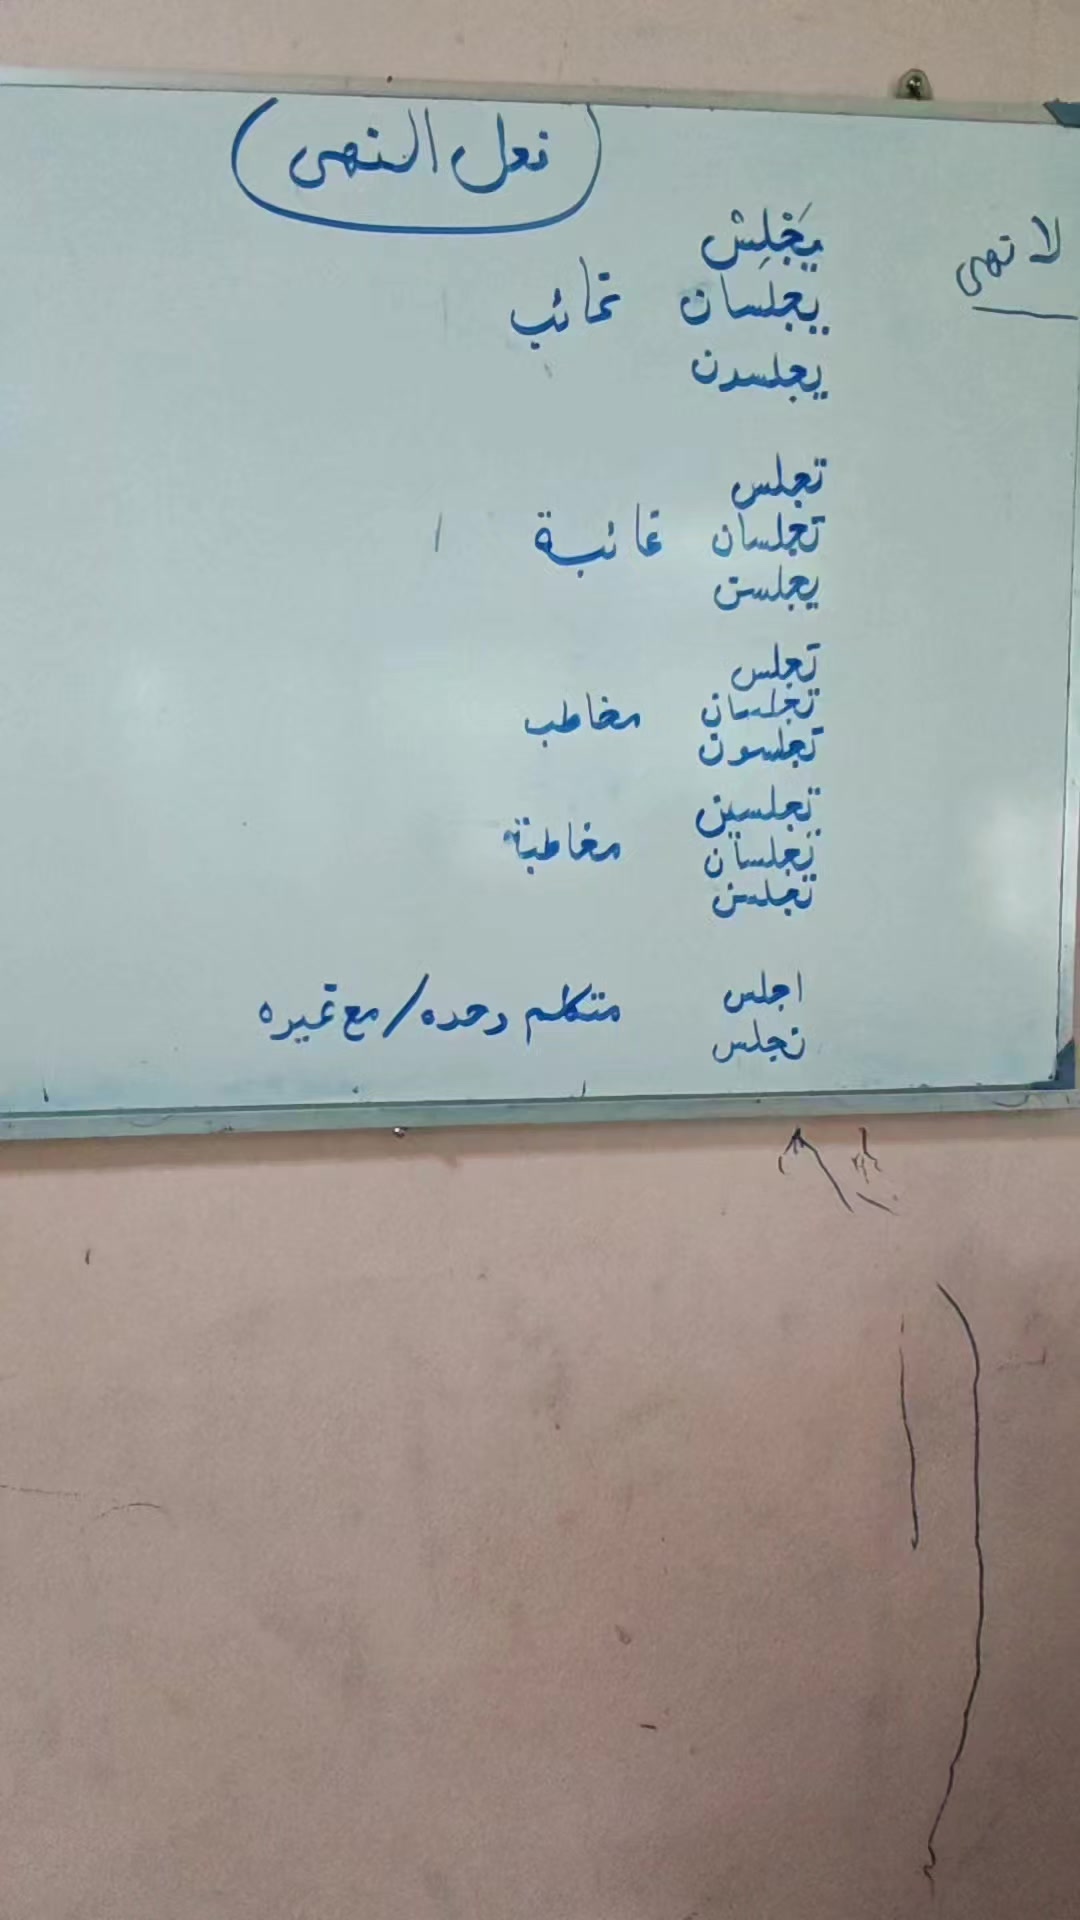 فعل النهى
لا نهى
يَجْلِسُ
يجلسان غائب
يجلسون
تجلس
تجلسان غائبة
يجلسن
تجلس
تجلسان مخاطب
تجلسون
تجلسين
تجلسان مخاطبة
تجلسن
اجلس
متكلم وحده/مع غيره
نجلس